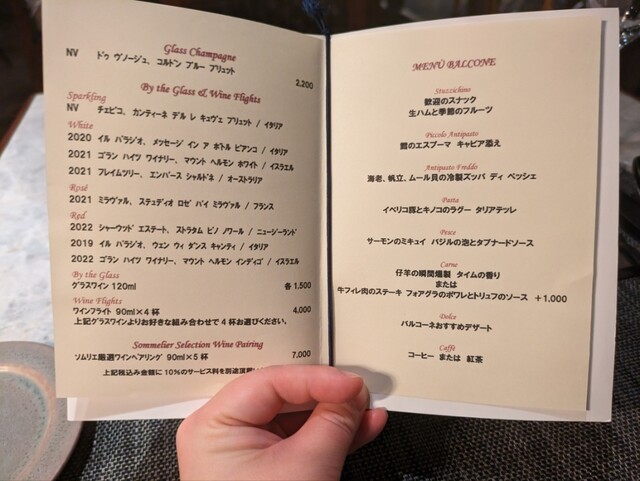 Glass Champagne
NV ドゥ ヴノージュ、コルドン ブルー ブリュット
2,200
By the Glass & Wine Flights
Sparkling
NV チェビコ、カンティーネ デル レ キュヴェ ブリュット / イタリア
White
2020 イル パラジオ、メッセージ イン ア ボトル ビアンコ / イタリア
2021 ゴラン ハイツ ワイナリー、マウント ヘルモン ホワイト / イスラエル
2021 フレイムツリー、エンバース シャルドネ / オーストラリア
Rosé
2021 ミラヴァル、ステュディオ ロゼ バイ ミラヴァル / フランス
Red
2022 シャーウッド エステート、ストラタム ピノ ノワール / ニュージーランド
2019 イル パラジオ、ウェン ウィ ダンス キャンティ / イタリア
2022 ゴラン ハイツ ワイナリー、マウント ヘルモン インディゴ / イスラエル
By the Glass
グラスワイン 120ml 各 1,500
Wine Flights
ワインフライト 90ml×4杯 4,000
上記グラスワインよりお好きな組み合わせで4杯お選びください。
Sommelier Selection Wine Pairing
ソムリエ厳選ワインペアリング 90ml×5杯 7,000
上記税込み金額に10%のサービス料を別途頂戴
MENÙ BALCONE
Stuzzichino
歓迎のスナック
生ハムと季節のフルーツ
Piccolo Antipasto
鱈のエスプーマ キャビア添え
Antipasto Freddo
海老、帆立、ムール貝の冷製ズッパ ディ ペッシェ
Pasta
イベリコ豚とキノコのラグー タリアテッレ
Pesce
サーモンのミキュイ バジルの泡とタプナードソース
Carne
仔羊の瞬間燻製 タイムの香り
または
牛フィレ肉のステーキ フォアグラのポワレとトリュフのソース +1,000
Dolce
バルコーネおすすめデザート
Caffè
コーヒー または 紅茶